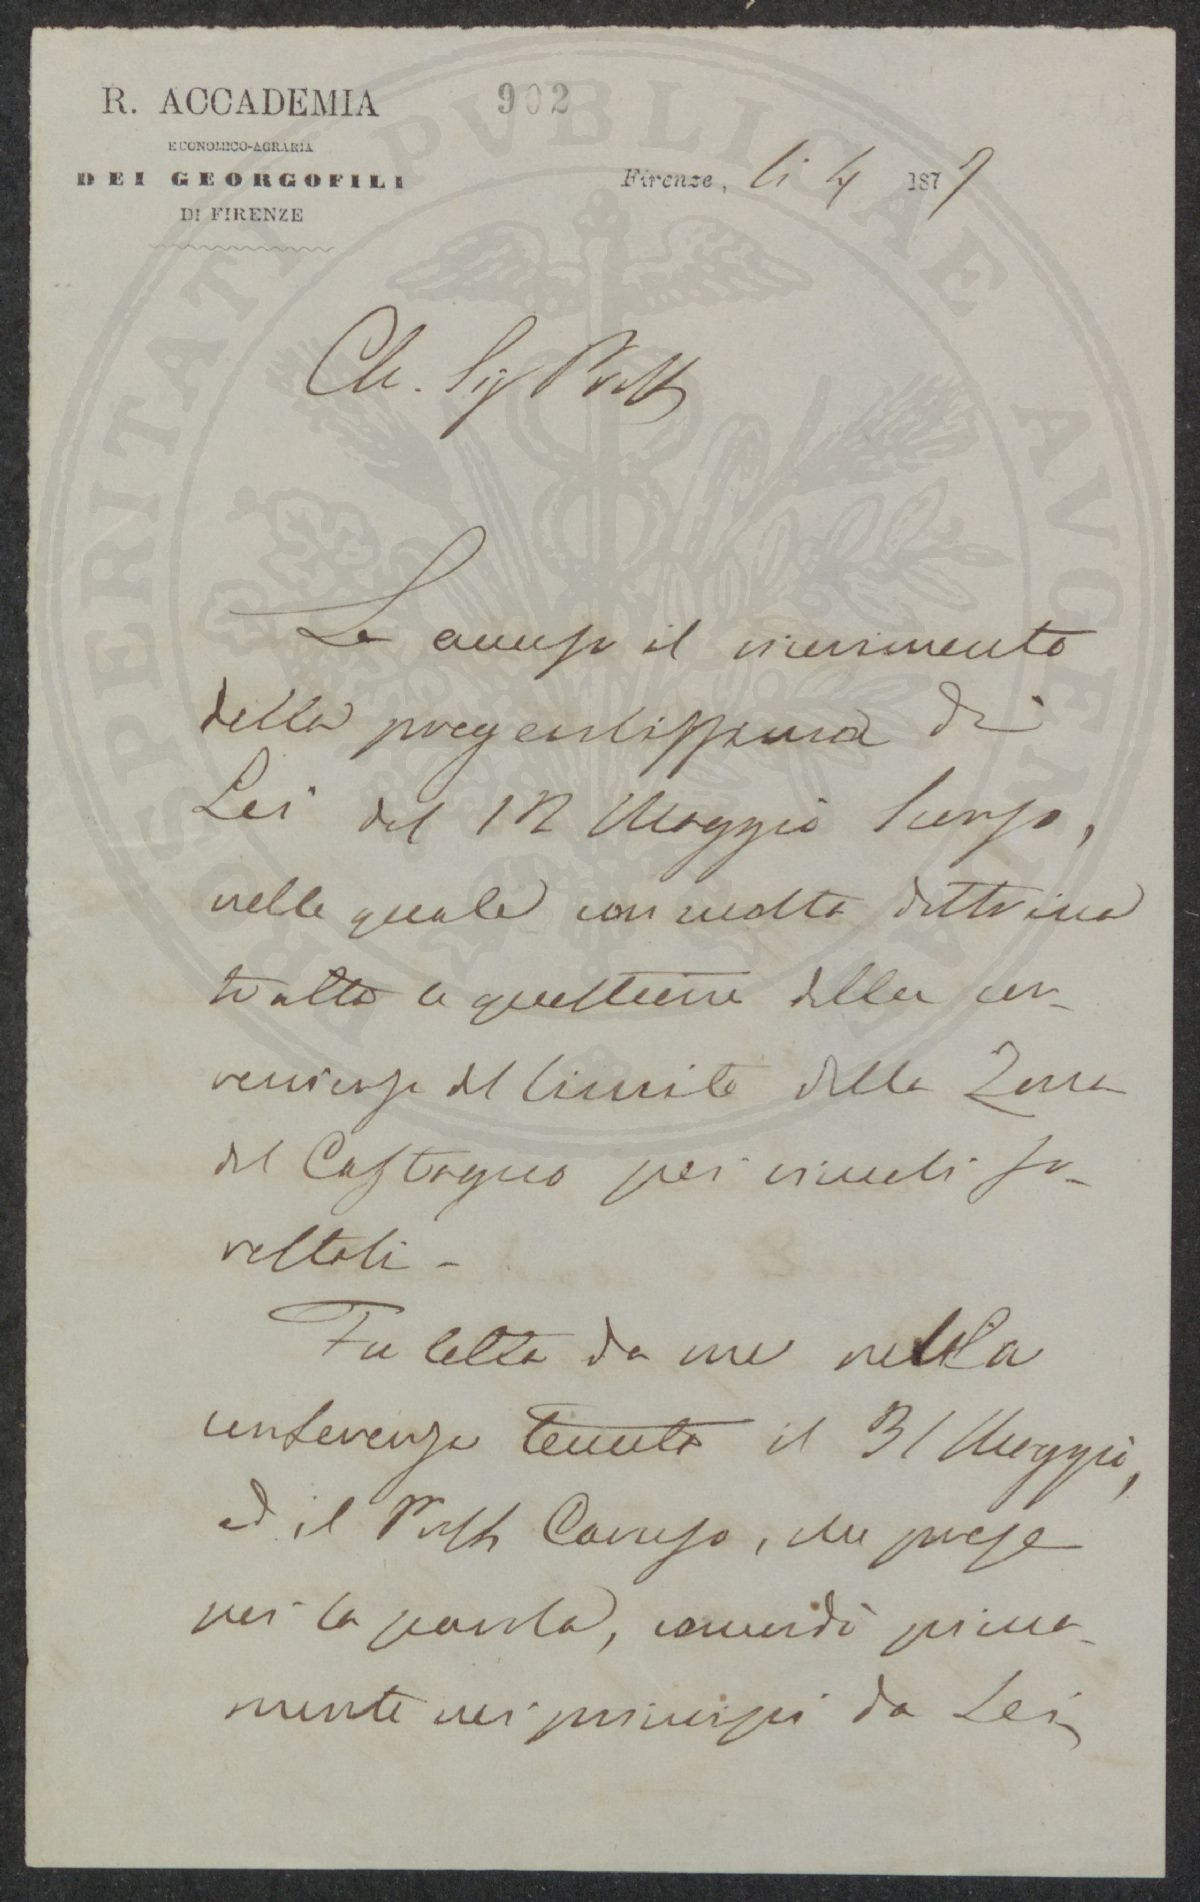 R. ACCADEMIA
ECONOMICO-AGRARIA
DEI GEORGOFILI
DI FIRENZE
902
Firenze, li 4 1877
Ch. Sig Proff
Le accuso il ricevimento
della pregentissima di
Lei del 12 Maggio scorso,
nella quale con molta dottrina
tratta la questione della con-
venienza del limite della Zona
del Castagno pei vincoli fo-
restali -
Fu letta da me nella
conferenza tenuta il 31 Maggio,
ed il Proff Caruso, che prese
poi la parola, concordò piena-
mente nei principi da Lei
PROSPERITATI PVBLICAE AVGENDAE